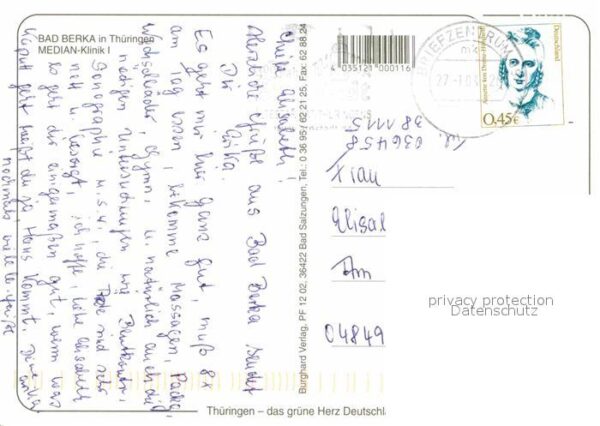 BAD BERKA in Thüringen
MEDIAN-Klinik I
Liebe Elisabeth!
Herzliche Grüße aus Bad Berka sendet
Dir Erika.
Es geht mir hier ganz gut, muß 8x
am Tag essen, bekomme Massagen, Packg,
Wechselbäder, Gymn. u. natürlich auch die
nötigen Untersuchungen wie Blutkontr.,
Sonographie u.s.w., die sind sehr
nett u. besorgt, ich hoffe, liebe Elisabeth
es geht dir einigermaßen gut, wenn was
kaput geht heißt du ja Hans kommt. Deine Erika
nochmals viele l. Grüße
4 035121 000116
Burghard Verlag, PF 12 02, 36422 Bad Salzungen, Tel.: 0 36 95/ 62 21 25, Fax: 62 88 24
BRIEFZENTRUM
Deutschland
Annette von Droste-Hülshoff
0,45€
Tel. 036458
38115
Frau
Elisab
Am
04849
privacy protection
Datenschutz
Thüringen – das grüne Herz Deutschla